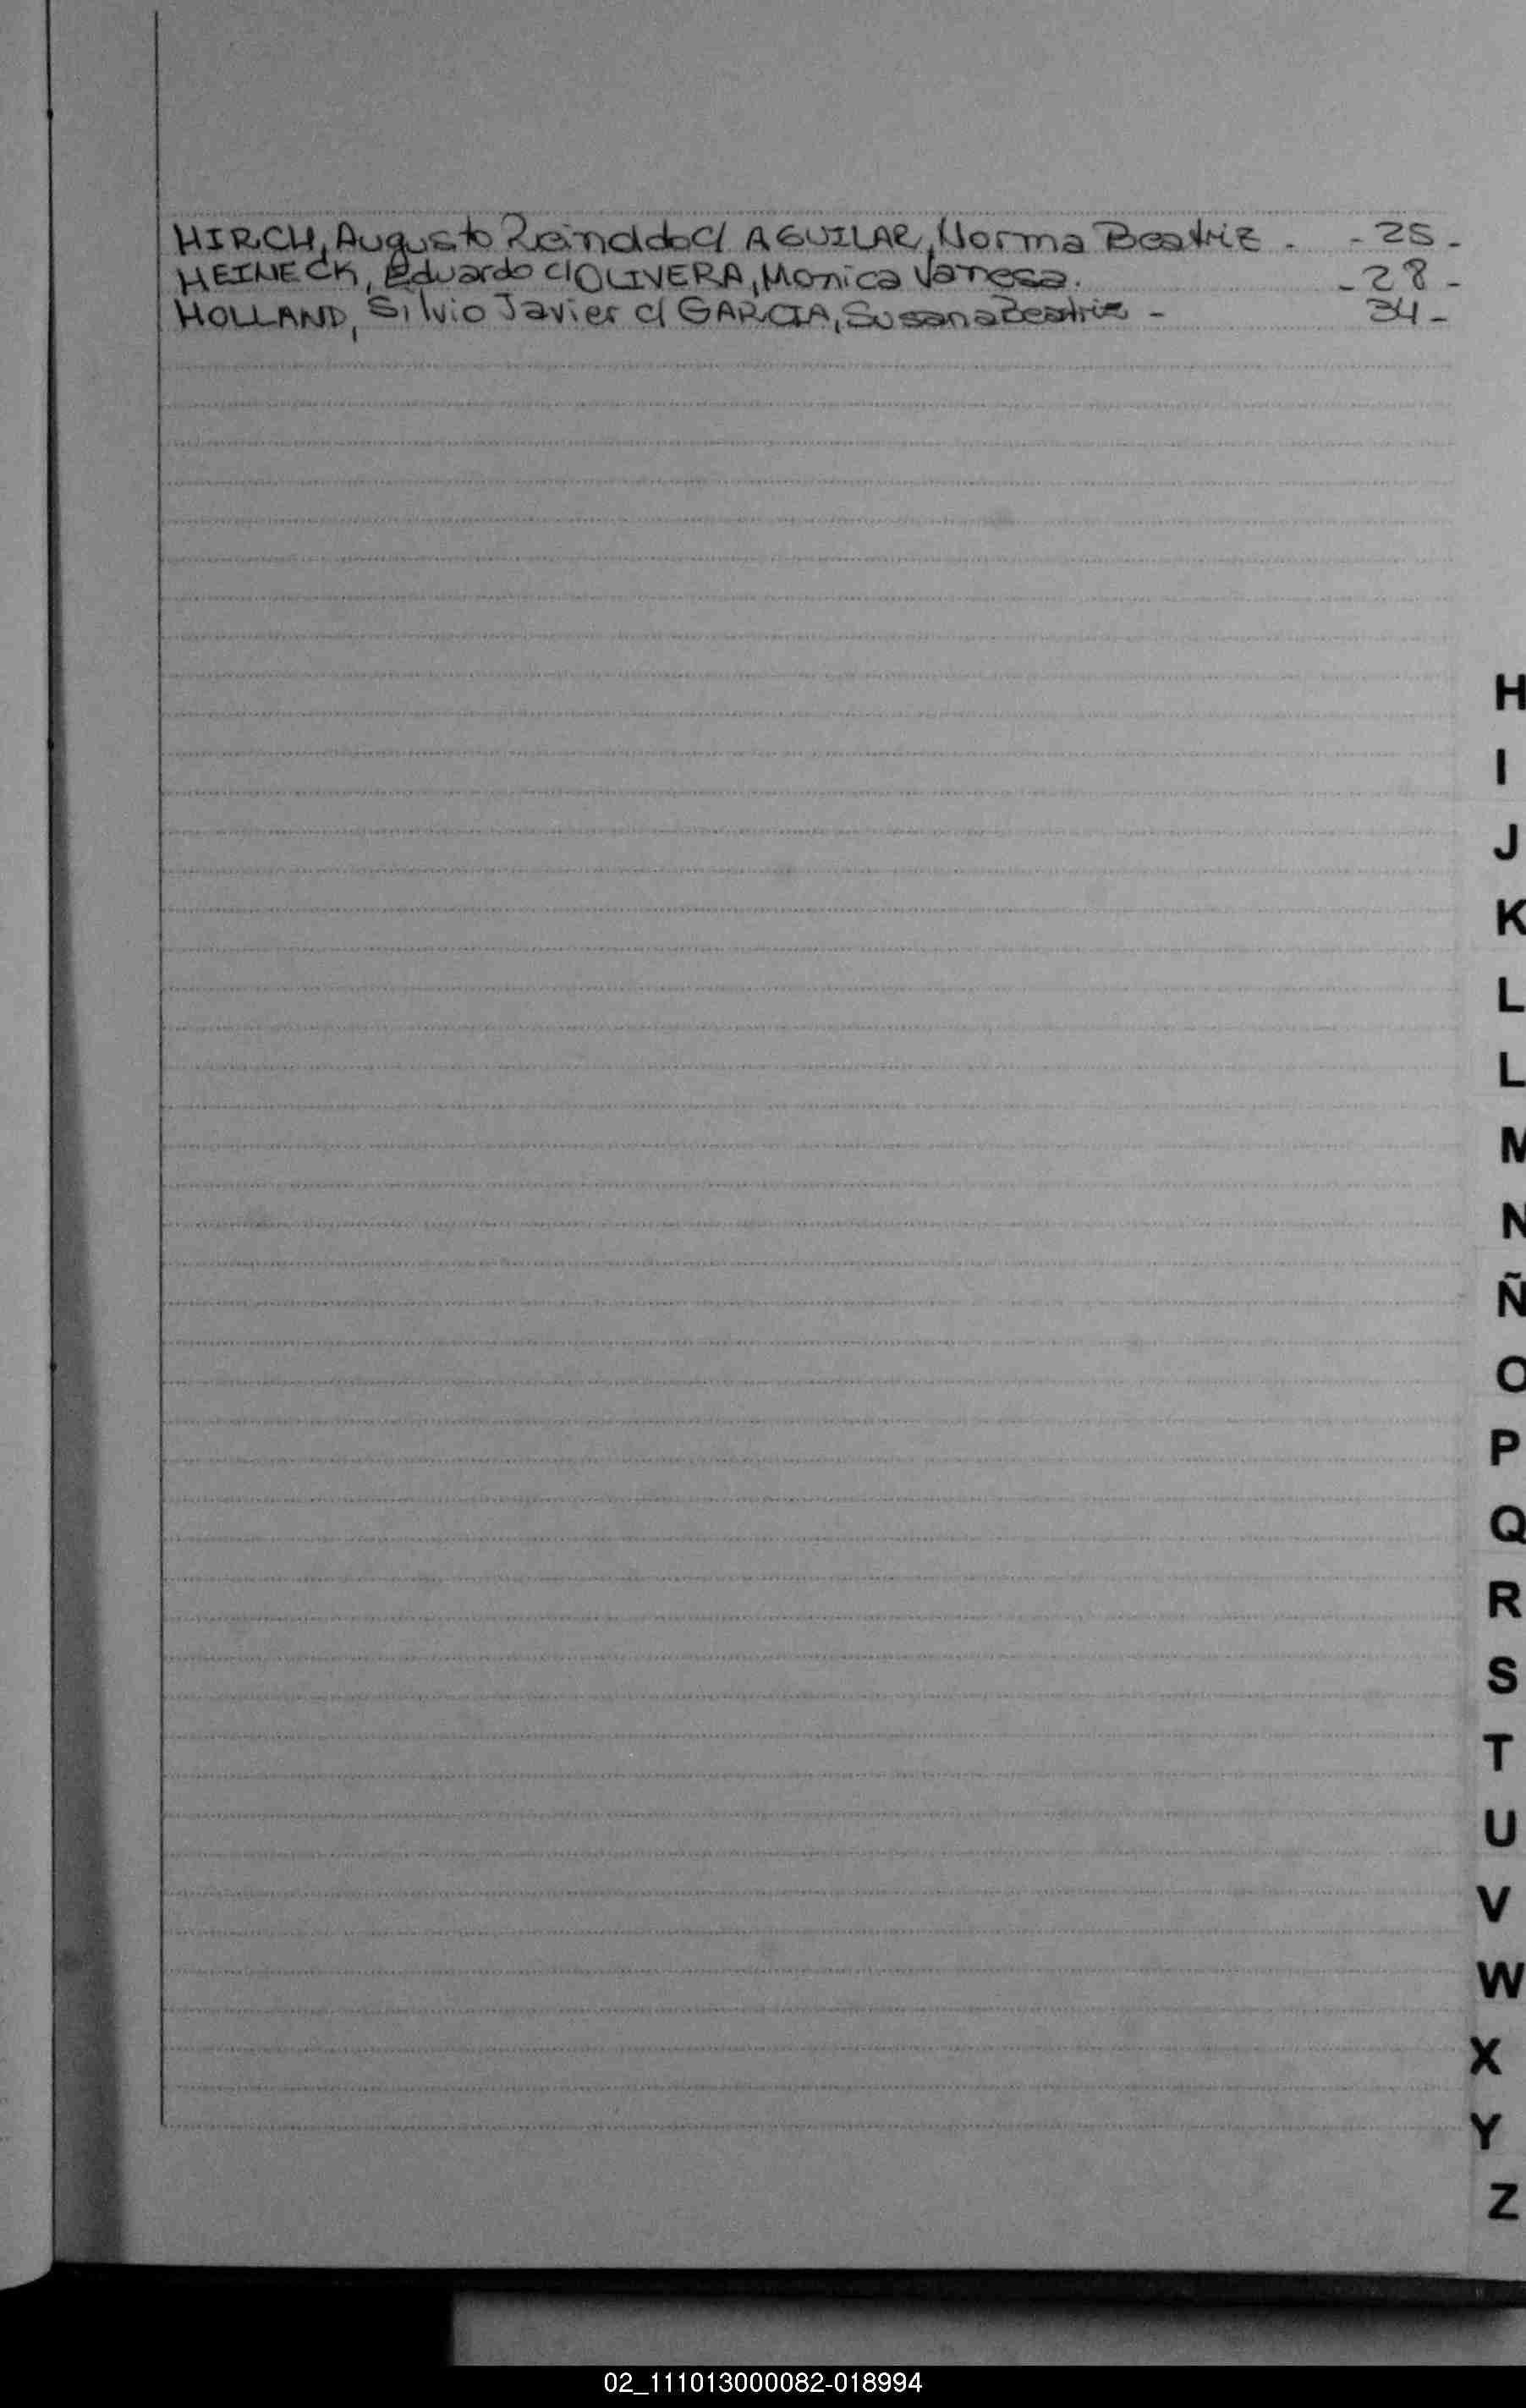 HIRCH, Augusto Reinaldo c/ AGUILAR, Norma Beatriz. - 25 -
HEINECK, Eduardo c/ OLIVERA, Monica Vanesa. - 28 -
HOLLAND, Silvio Javier c/ GARCIA, Susana Beatriz - 34 -
H
I
J
K
L
L
M
N
Ñ
O
P
Q
R
S
T
U
V
W
X
Y
Z
02_111013000082-018994